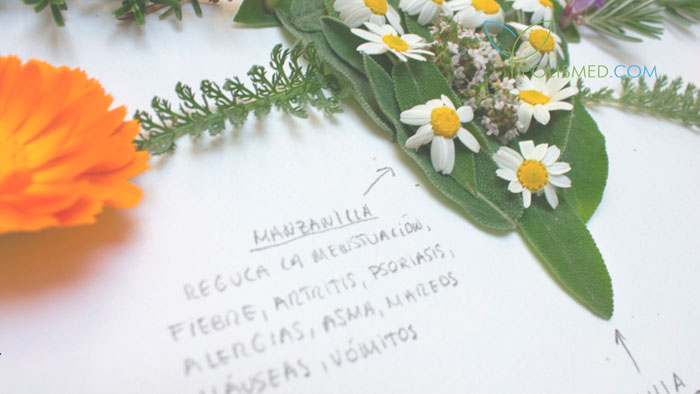 OLISMED.COM
MANZANILLA
REGULA LA MENSTUACIÓN,
FIEBRE, ARTRITIS, PSORIASIS,
ALERGIAS, ASMA, MAREOS
NÁUSEAS, VÓMITOS